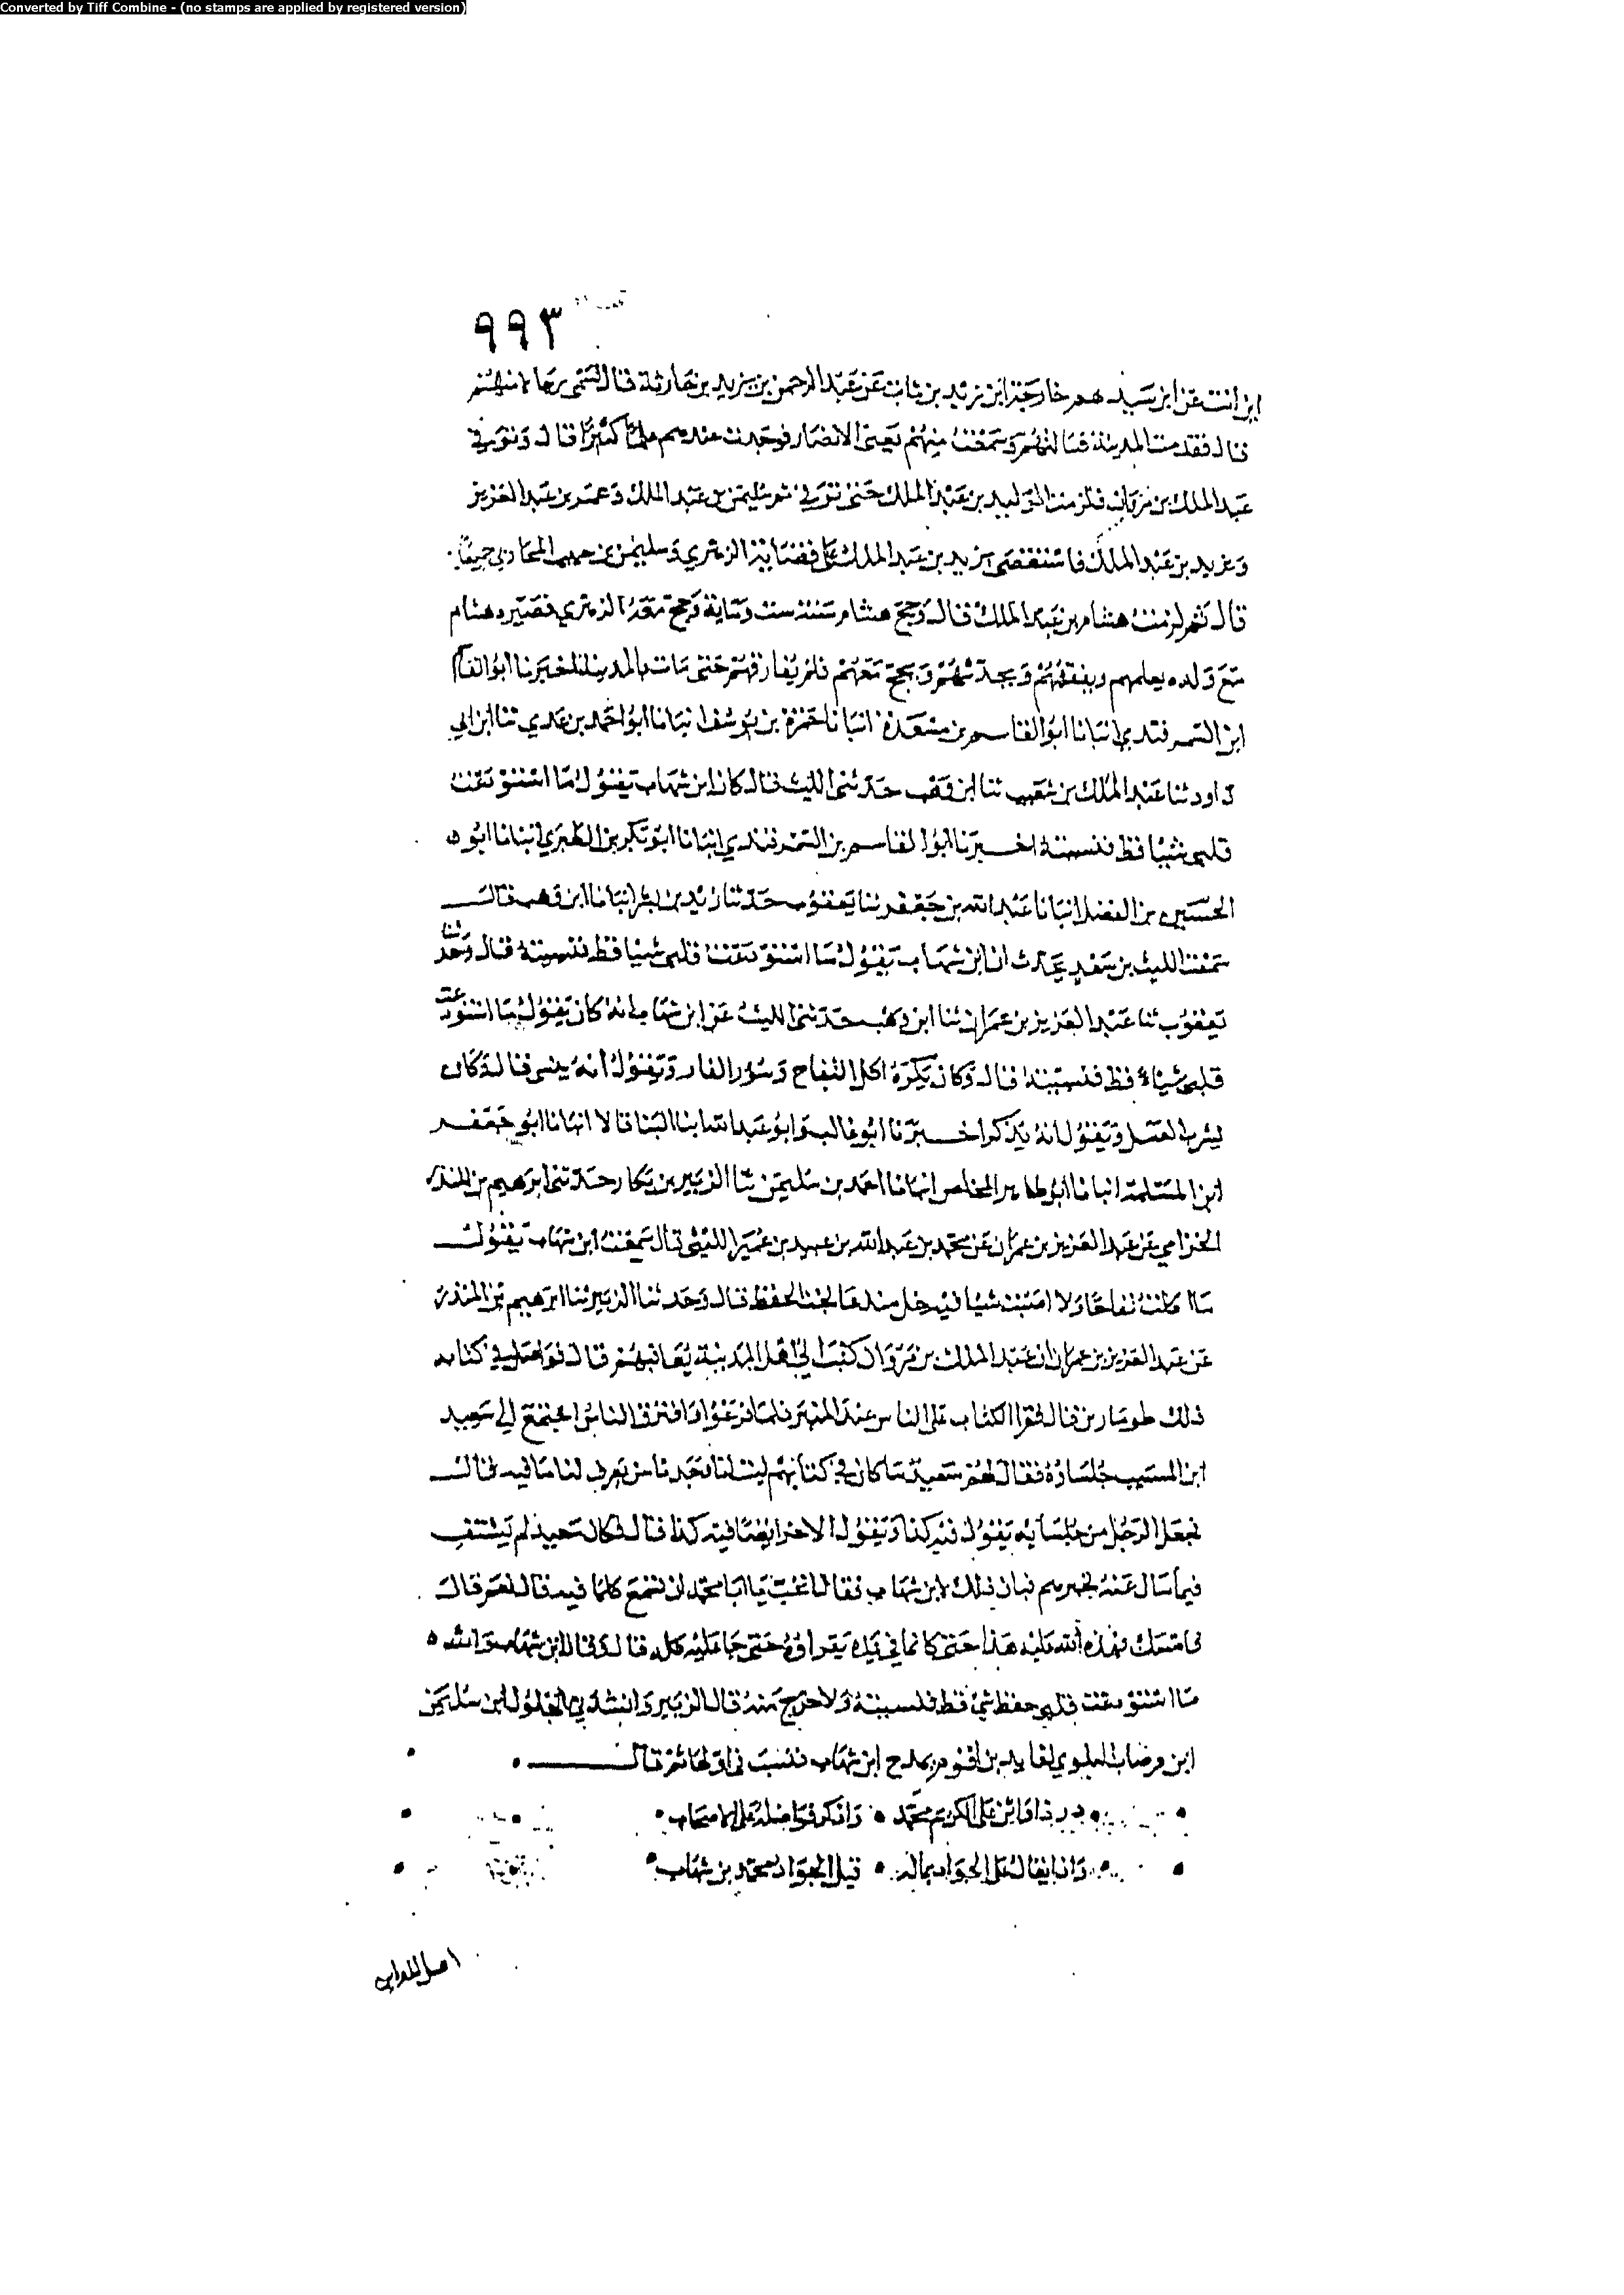 Converted by Tiff Combine - (no stamps are applied by registered version)
٩٩٣
ابن انت عن ابن سيد هم خارجة ابن زيد بن ثابت عن عبد الرحمن بن يزيد بن جارثة قال الشمى رجالا منهم
قال فقدمت المدينة فسالتهم وسمعت منهم يعنى الانصار فوجدت عندهم علما كثيرا قال وتوفي
عبد الملك بن مروان فلزمت الوليد بن عبد الملك حتى توفي ثم سليمن بن عبد الملك وعمر بن عبد العزيز
ويزيد بن عبد الملك فاستقضى يزيد بن عبد الملك على قضايه الزهري وسليمن بن حبيب المحاربي جميعا
قال ثم لزمت هشام بن عبد الملك قال وحج هشام سنة ست ومئاية وحج معه الزهري فصيره هشام
مع ولده يعلمهم ويفقههم ويحدثهم ويحج معهم فلم يفارقهم حتى مات بالمدينة اخبرنا ابو القا
ابن السمرقندي انبانا ابو القاسم بن مسعدة انبانا حمزة بن يوسف انبانا ابو احمد بن عدي ثنا ابن ابي
داود ثنا عبد الملك بن شعيب ثنا ابن وهب حدثنى الليث قال كان ابن شهاب يقول ما استودعت
قلبى شيئا قط فنسيته اخبرنا ابو القاسم بن السمرقندي انبانا ابو بكر بن الطبري انبانا ابو
الحسين بن الفضل انبانا عبد الله بن جعفر ثنا يعقوب حدثنا زيد بن بشر انبانا ابن وهب قال
سمعت الليث بن سعد يحدث ان ابن شهاب يقول ما استودعت قلبى شيئا قط فنسيته قال وحدثنا
يعقوب ثنا عبد العزيز بن عمران ثنا ابن وهب حدثنى الليث عن ابن شهاب انه كان يقول ما استودعت
قلبى شيئا قط فنسيته قال وكان يكره اكل التفاح وسور الفار ويقول انه ينسى قال وكان
يشرب العسل ويقول انه يذكر اخبرنا ابو غالب وابو عبد الله ابنا البنا قالا انبانا ابو جعفر
ابن المسلمة انبانا ابو طاهر المخلص انبانا احمد بن سليمن ثنا الزبير بن بكار حدثنى ابرهيم بن المنذر
الحزامي عن عبد العزيز بن عمران عن محمد بن عبد الله بن عبيد بن عمير الليثى قال سمعت ابن شهاب يقول
ما اكلت تفاحا ولا اصبت شيا فيه خل منذ عالجت الحفظ قال وحدثنا الزبير ثنا ابرهيم بن المنذر
عن عبد العزيز بن عمران ان عبد الملك بن مروان كتب الى اهل المدينة يعاتبهم قال فوصل في كتابه
ذلك طومارين قال فقرا الكتاب على الناس عند المنبر فلما فرغوا وافترق الناس اجتمع الى سعيد
ابن المسيب جلساوه فقال لهم سعيد ما كان في كتابهم ليت انا نجد ما من يعرف لنا ما فيه قال
فجعل الرجل من جلسايه يقول فيه كذا ويقول الاخر ايضا فيه كذا قال فكان سعيد لم يشتف
فيما سال عنه لخبرهم فبان ذلك لابن شهاب فقال اتحب يا ابا محمد ان تسمع كلما فيه قال نعم قال
فامسك فهذه الله عليه هذا حتى كانما في يده يقراوه حتى جا عليه كله قال وقال ابن شهاب والله
ما استودعت قلبى حفظ شي قط فنسيته ولا خرج منه قال الزبير وانشدني البهلول ابن سليمن
ابن قرضاب البلوي لفايد بن اقرم يمدح ابن شهاب نسيب في اولها ثم قال
در ذا واثن على الكريم محمد • واذكر فواضله على الاصحاب
واذا يقال على الجواد بماله • قيل الجواد محمد بن شهاب
اهل المداين